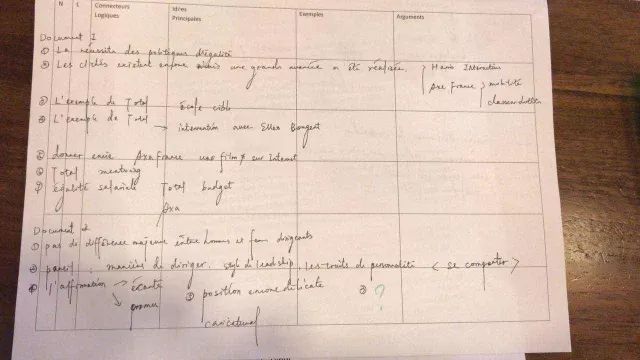 N L Connecteurs Logiques Idées Principales Exemples Arguments
Document 1
① La réussite des politiques d'égalité
② Les clichés existent encore mais une grande avancée a été réalisée. } Haris Interactive
Axa France } mobilité
③ L'exemple de Total École cible
④ L'exemple de Total → intervention avec Ellen
⑤ donner envie Axa France une film sur Internet
⑥ Total mentoring
⑦ égalité salariale Total budget
Axa
Document 2
① pas de différence majeure entre homms et fem dirigeants
② pareil : manières de diriger, style de leadship, les traits de personalité < se comporter >
④ l'affirmation → écouté
② position encore délicate ③ ?
→ promu